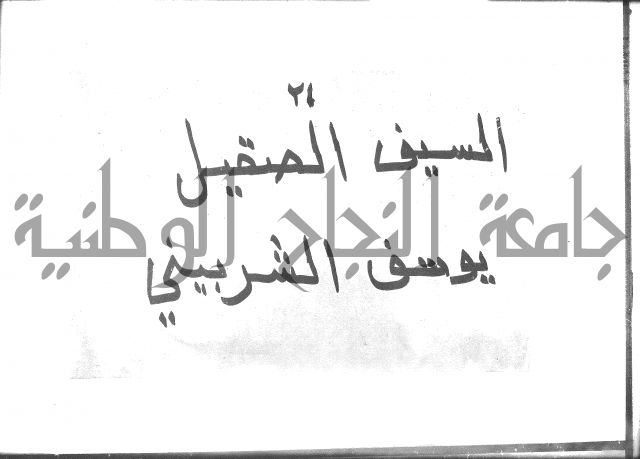 ٢٤
السيف الصقيل
جامعة النجاح الوطنية
يوسف الشربيني